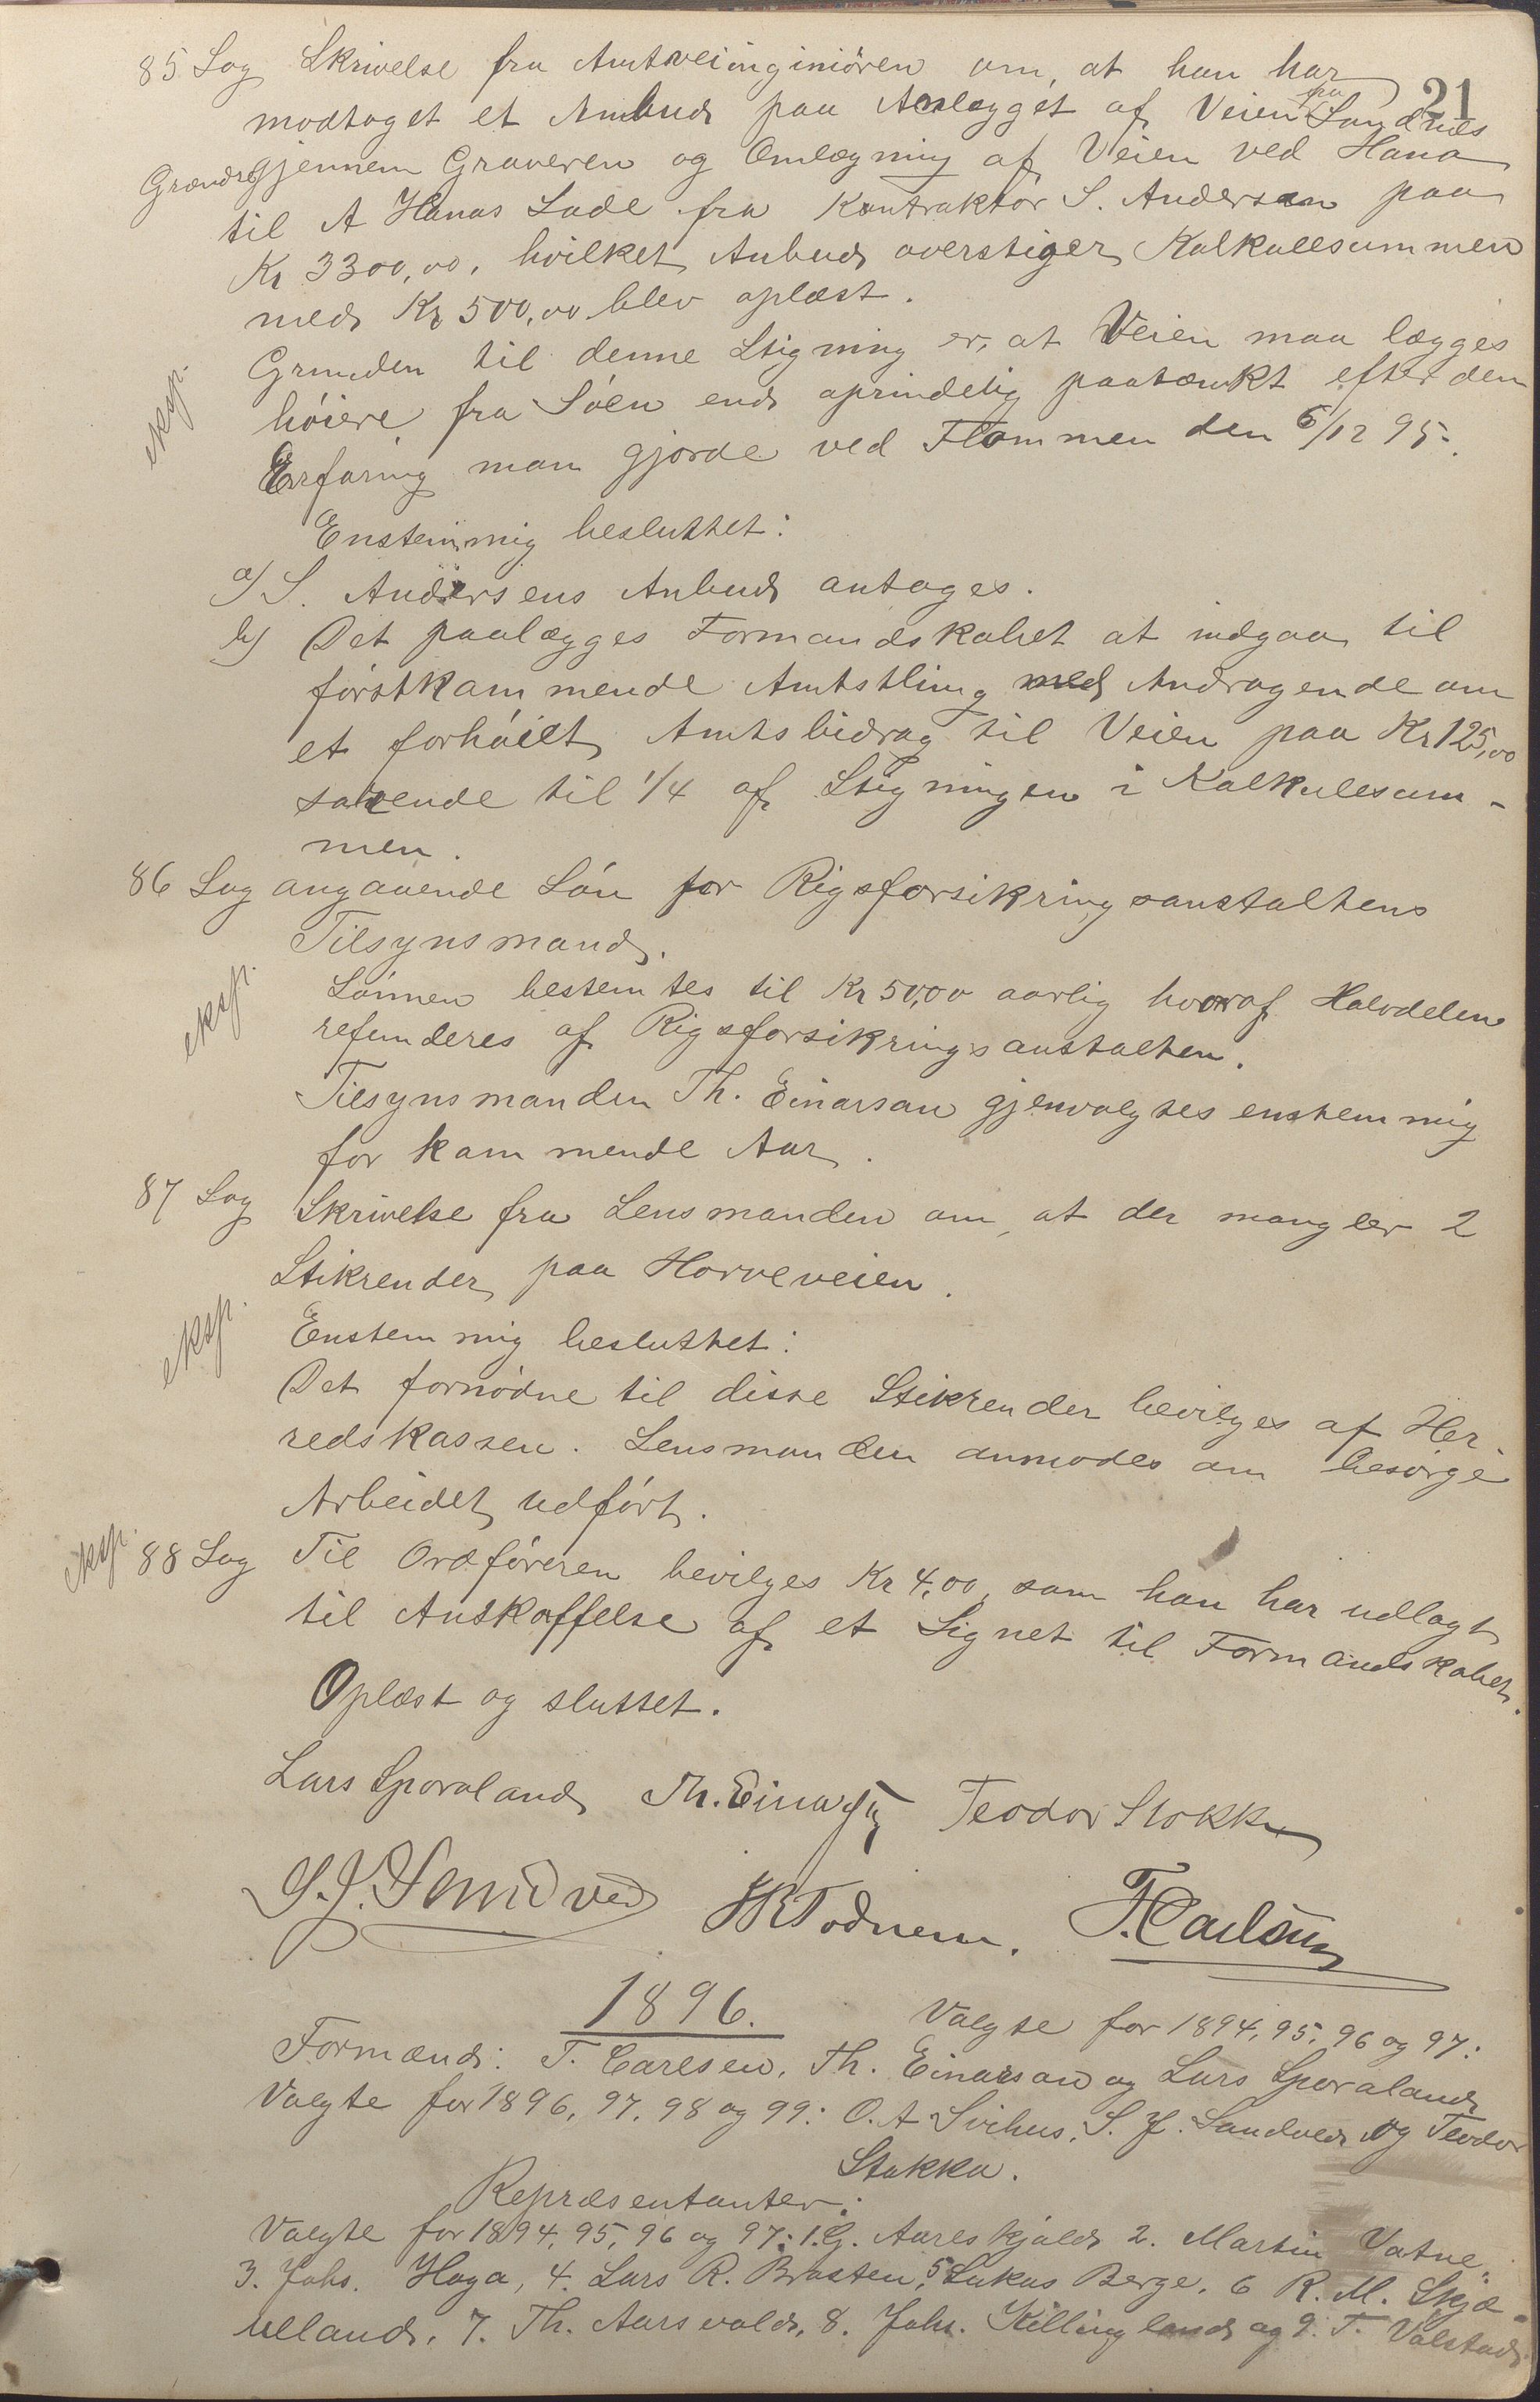 21
85 Sag Skrivelse fra Amtsveiinginiören om, at han har
modtaget et Anbud paa Anlægget af Veien fra Sandnes
Grændse gjennem Graveren og Omlægning af Veien ved Hana
til A Hanas Lade fra Kontraktör S. Andersen paa
Kr 3300,00, hvilket Anbud overstiger Kalkulesummen
med Kr 500,00 blev oplæst.
Grunden til denne Stigning er, at Veien maa lægges
höiere fra Söen end oprindelig paatænkt efter den
eksp.
Erfaring man gjorde ved Flommen den 6/12 95.
Enstemmig besluttet:
a) S. Andersens Anbud antages.
b) Det paalægges Formandskabet at indgaa til
förstkommende Amtsthing med Andragende om
et forhöiet Amtsbidrag til Veien paa Kr 125,00
svarende til 1/4 af Stigningen i Kalkulesum-
men.
86 Sag angaaende Lön for Rigsforsikringsanstaltens
Tilsynsmand.
eksp.
Lönnen bestemtes til Kr 50,00 aarlig hvoraf Halvdelen
refunderes af Rigsforsikringsanstalten.
Tilsynsmanden Th. Einarsan gjenvalgtes enstemmig
for kommende Aar.
87 Sag Skrivelse fra Lensmanden om, at der mangler 2
Stikrender paa Horveveien.
eksp.
Enstemmig besluttet:
Det fornödne til disse Stikrender bevilges af Her-
redskassen. Lensmanden anmodes om besörge
Arbeidet udfört.
eksp. 88 Sag Til Ordföreren bevilges Kr 4,00, som han har udlagt
til Anskaffelse af et Signet til Formandskabet.
Oplæst og sluttet.
Lars Sporaland Th. Einarsen Teodor Stokka
S. J. Sandved T. Carlsen
1896.
Valgte for 1894, 95, 96 og 97:
Formænd: T. Carlsen, Th. Einarsan og Lars Sporaland
Valgte for 1896, 97, 98 og 99: O. A Svihus, S. J. Sandved og Teodor
Stokka.
Repræsentanter:
Valgte for 1894, 95, 96 og 97: 1. G. Aareskjold 2. Martin Vatne,
3. Johs. Hoga, 4. Lars R. Brasten, 5 Lukas Berge, 6 R. M. Skjæ-
velland, 7. Th. Aarsvold, 8. Johs. Killingland og 9. T. Volstad.